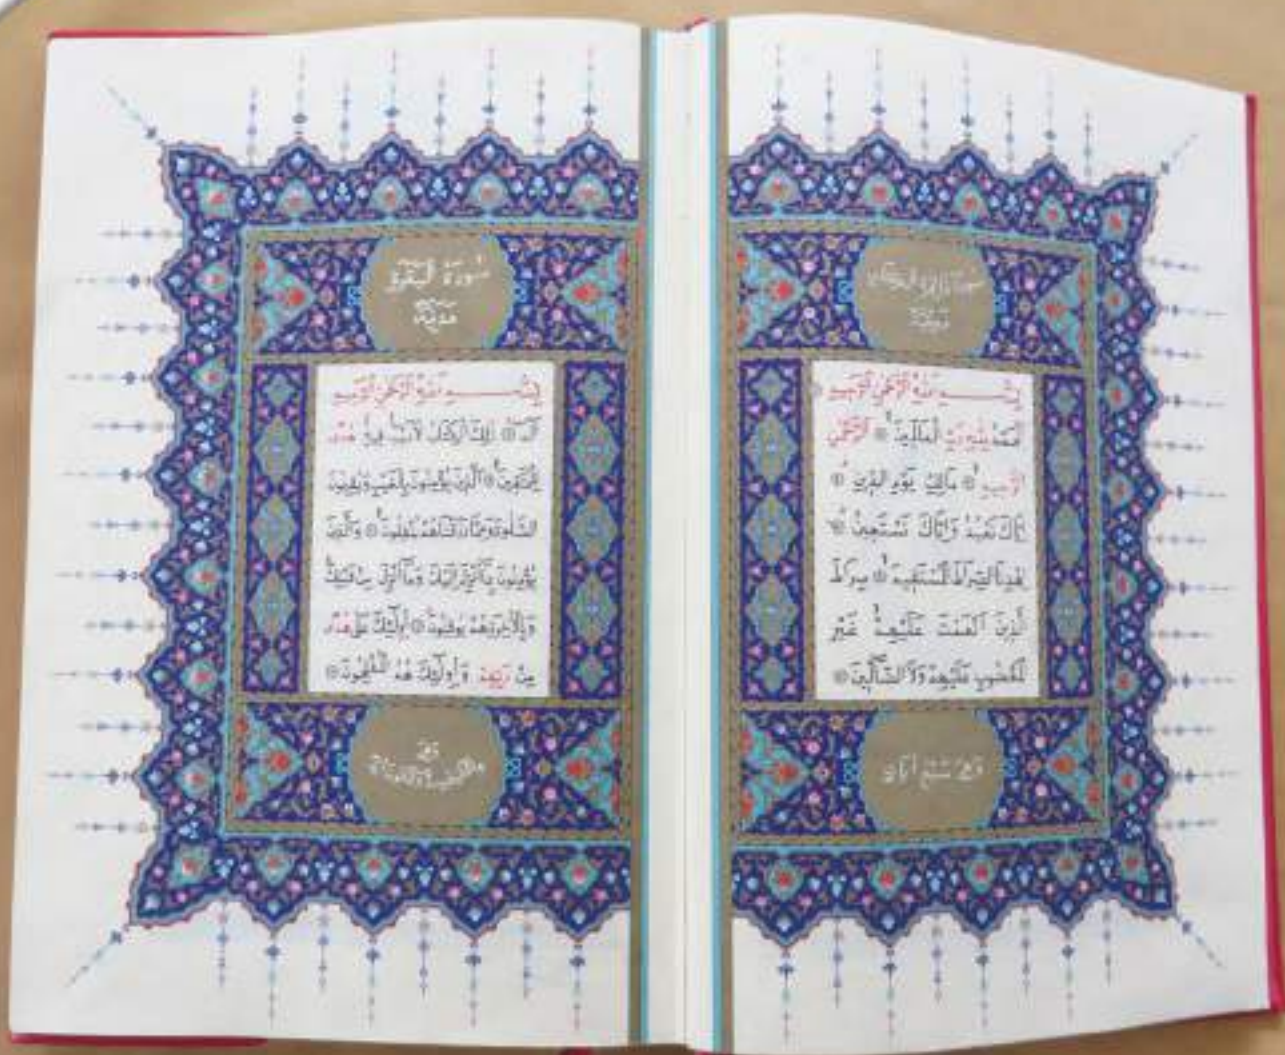 بِسْمِ اللّٰهِ الرَّحْمٰنِ الرَّحِيمِ
اَلْحَمْدُ لِلّٰهِ رَبِّ الْعَالَمِينَ ۞ اَلرَّحْمٰنِ
الرَّحِيمِ ۞ مَالِكِ يَوْمِ الدِّينِ ۞
اِيَّاكَ نَعْبُدُ وَاِيَّاكَ نَسْتَعِينُ ۞
اِهْدِنَا الصِّرَاطَ الْمُسْتَقِيمَ ۞ صِرَاطَ
الَّذِينَ اَنْعَمْتَ عَلَيْهِمْ غَيْرِ
الْمَغْضُوبِ عَلَيْهِمْ وَلَا الضَّالِّينَ ۞
وَهِيَ سَبْعُ اٰيَاتٍ
سُورَةُ الْبَقَرَةِ
مَدَنِيَّةٌ
بِسْمِ اللّٰهِ الرَّحْمٰنِ الرَّحِيمِ
الٓمٓ ۞ ذٰلِكَ الْكِتَابُ لَا رَيْبَ فِيهِ هُدًى
لِلْمُتَّقِينَ ۞ اَلَّذِينَ يُؤْمِنُونَ بِالْغَيْبِ وَيُقِيمُونَ
الصَّلٰوةَ وَمِمَّا رَزَقْنَاهُمْ يُنْفِقُونَ ۞ وَالَّذِينَ
يُؤْمِنُونَ بِمَٓا اُنْزِلَ اِلَيْكَ وَمَٓا اُنْزِلَ مِنْ قَبْلِكَ
وَبِالْاٰخِرَةِ هُمْ يُوقِنُونَ ۞ اُو۬لٰٓئِكَ عَلٰى هُدًى
مِنْ رَبِّهِمْ وَاُو۬لٰٓئِكَ هُمُ الْمُفْلِحُونَ ۞